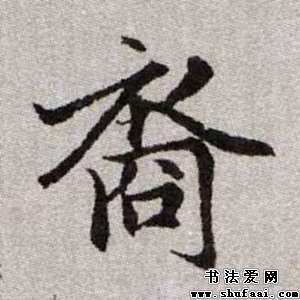 裔
书法爱网
www.shufaai.com